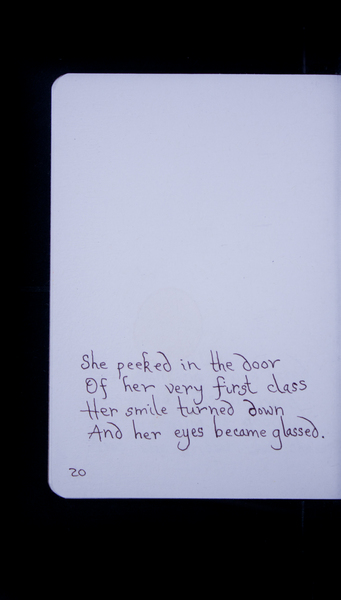 She peeked in the door
Of her very first class
Her smile turned down
And her eyes became glassed.
20